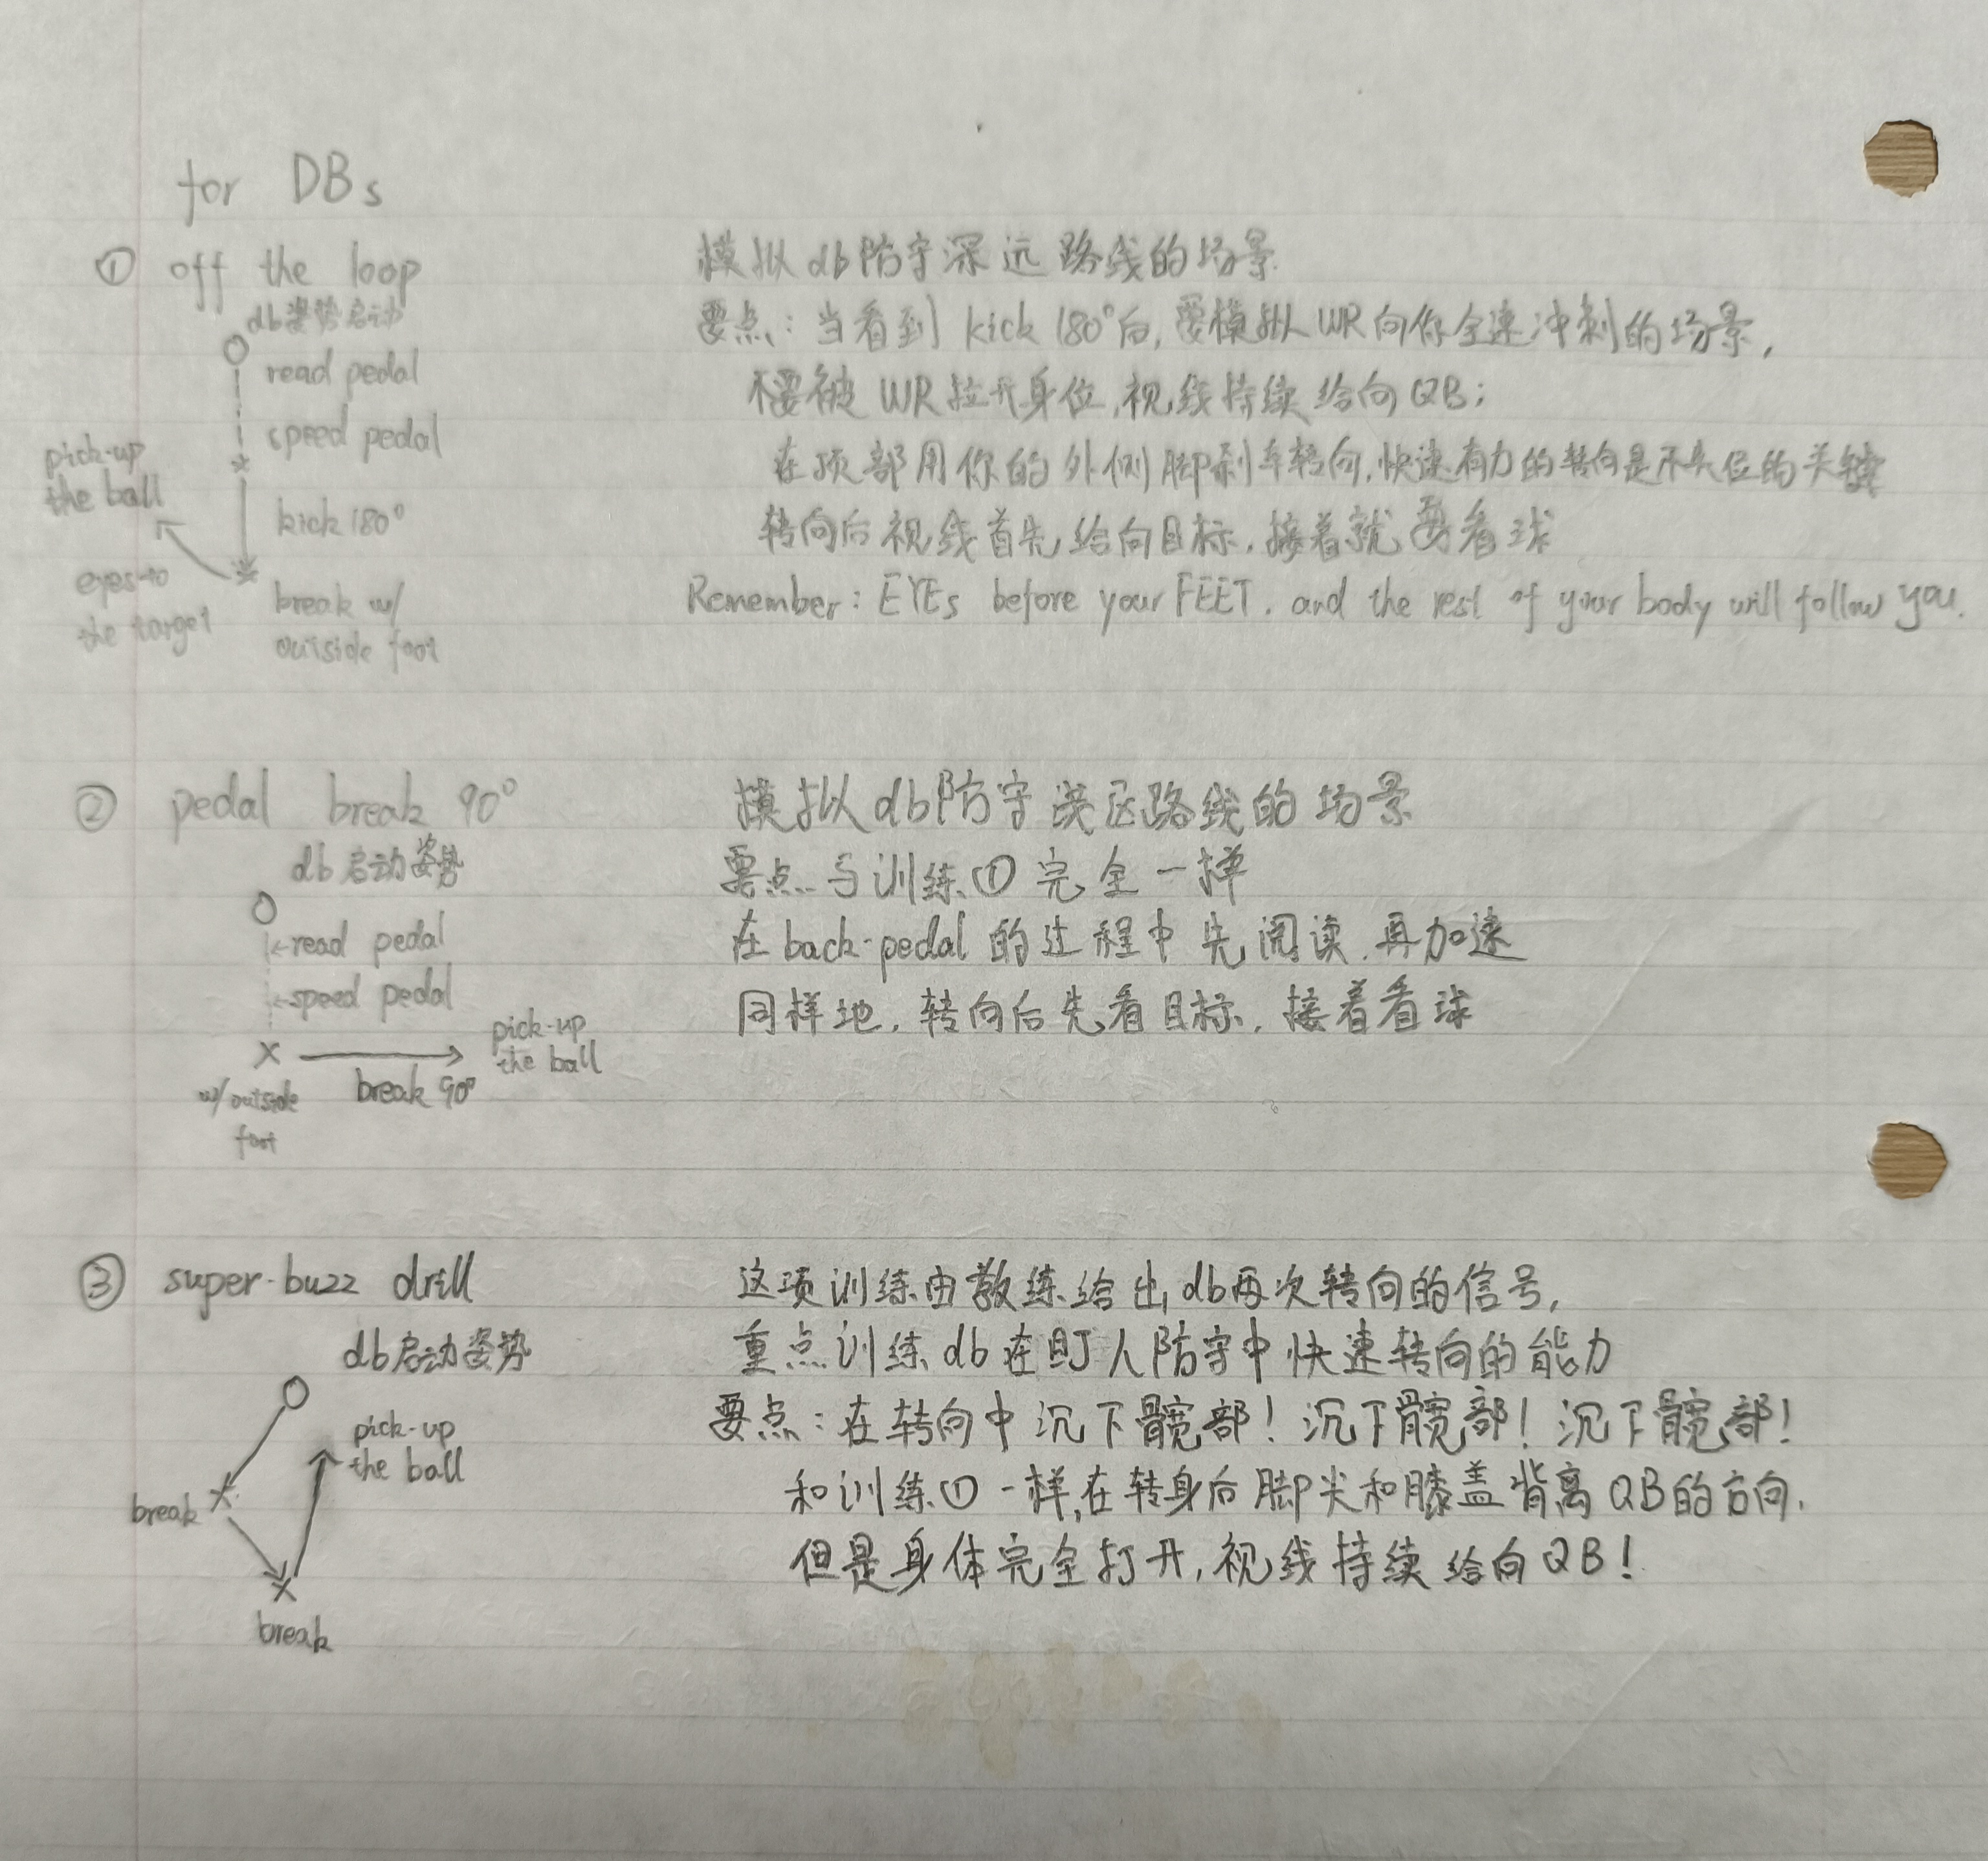 for DBs
① off the loop
db姿势启动
read pedal
speed pedal
pick-up
the ball
kick 180°
eyes to
the target
break w/
outside foot
模拟db防守深远路线的场景.
要点：当看到 kick 180°后,要模拟WR向你全速冲刺的场景,
不要被WR拉开身位,视线持续给向QB;
在顶部用你的外侧脚刹车转向,快速有力的转向是不失位的关键
转向后视线首先给向目标,接着就要看球
Remember: EYEs before your FEET. and the rest of your body will follow you.
② pedal break 90°
db启动姿势
read pedal
speed pedal
pick-up
the ball
break 90°
w/ outside
foot
模拟db防守 路线的场景
要点与训练①完全一样
在back-pedal的过程中先阅读,再加速
同样地,转向后先看目标,接着看球
③ super-buzz drill
db启动姿势
pick-up
the ball
break
break
这项训练由教练给出db两次转向的信号,
重点训练db在盯人防守中快速转向的能力
要点：在转向中沉下髋部！沉下髋部！沉下髋部！
和训练①一样,在转身后脚尖和膝盖背离QB的方向,
但是身体完全打开,视线持续给向QB！